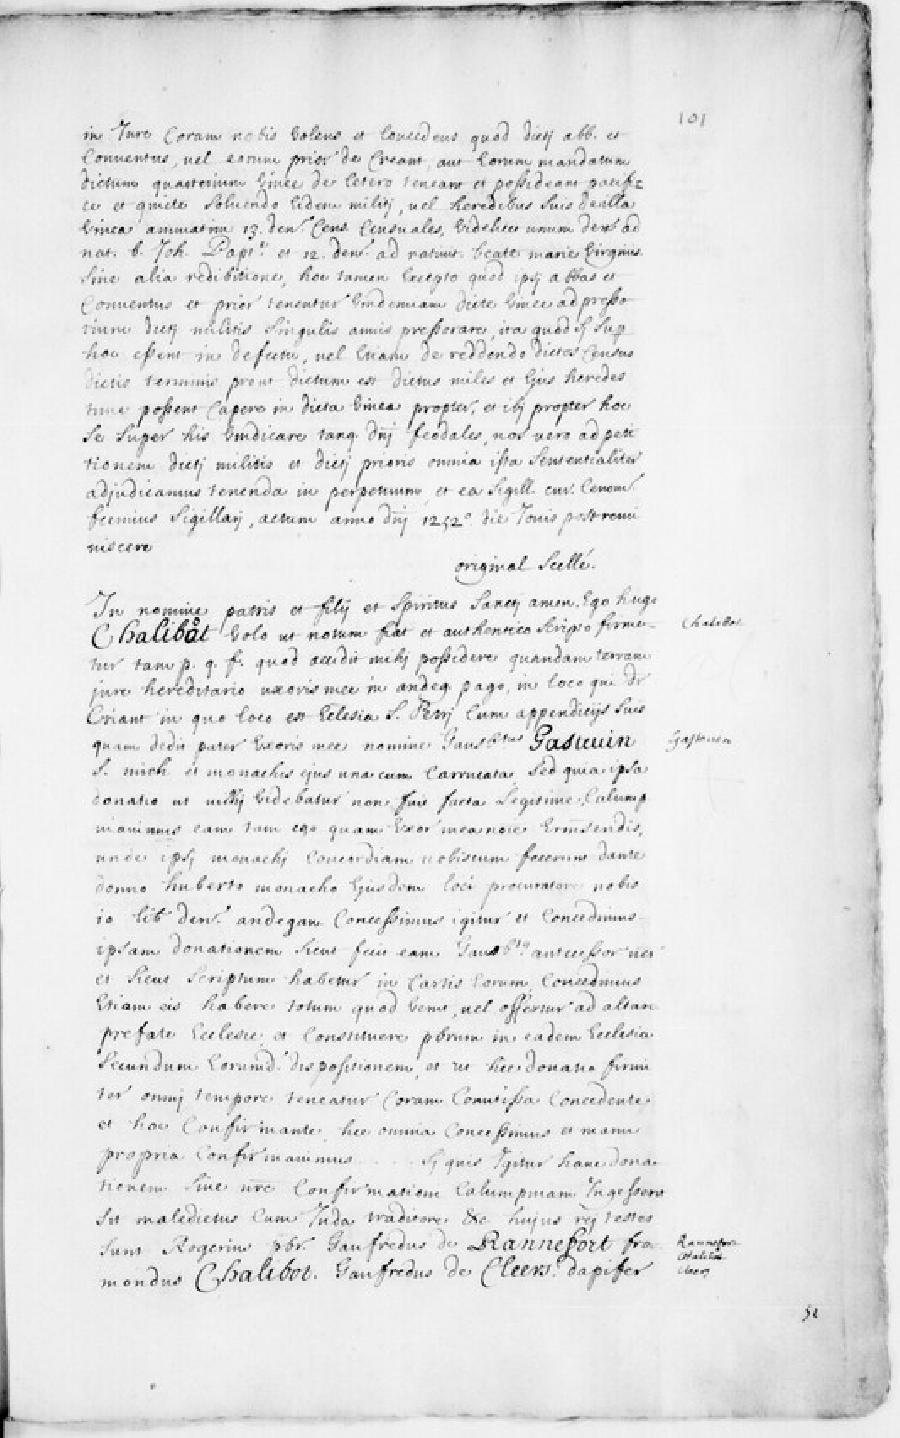 101
in Jure Coram nobis Volens et Concedens quod dictj abb. et
Conventus, vel eorum prior de Creant, aut Eorum mandatum
dictum quarterium Vinee de Cetero teneant et possideant pacifi-
ce et quiete Solvendo Eidem militj, vel heredibus Suis de illa
Vinea annuatim 13. den. Cens. Censuales, Videlicet unum den. ad
nat. b. Joh. Bapt. et 12. den. ad nativit. beate marie Virginis
Sine alia redibitione, hoc tamen Excepto quod ipsj abbas et
Conventus et prior tenentur Vindemiam dicte Vinee ad presso
rium dictj militis Singulis annis pressorare, ita quod Sj Sup
hoc essent in defectu, vel Etiam de reddendo dictos Census
dictis terminis prout dictum est dictus miles et Ejus heredes
tunc possent Capere in dicta Vinea propter, et ibj propter hoc
Se Super his Vindicare tanq. dnj feodales, nos vero ad peti
tionem dictj militis et dictj prioris omnia ista Sententialiter
adjudicamus tenenda in perpetuum, et ea Sigill. cur. Cenom.
fecimus Sigillarj, actum anno dnj 1252° die Jovis post remi
niscere
original Scellé.
In nomine patris et filij et Spiritus Sanctj amen. Ego hugo
Chalibot Volo ut notum fiat et authentico Scripto firme-
Chalibot
tur tam p. q. f. quod accidit mihj possidere quandam terram
jure hereditario uxoris mee in andeg. pago, in loco qui dr
Criant in quo loco est Ecclesia S. Petrj Cum appendicijs Suis
quam dedit pater Uxoris mee nomine Gausbtus Gastevin
Gastevin
S. mich. et monachis ejus una cum Carrucata, Sed quia ipsa
donatio ut mihj Videbatur non fuit facta Legitime, Calump
niavimus eam tam ego quam Uxor mea noie Ermsendis,
unde ipsj monachj Concordiam nobiscum fecerunt dante
donno huberto monacho Ejusdem loci procuratore nobis
10 lib. den. andegav. Concessimus igitur et Concedimus
ipsam donationem Sicut fecit eam Gausbtus antecessor nr
et Sicut Scriptum habetur in Cartis Eorum, Concedimus
Etiam eis habere totum quod Venit, vel offertur ad altare
prefate Ecclesie, et Constituere pbrum in eadem Ecclesia
Secundum Eorumd. dispositionem, et ut hec donatio firmi
ter omnj tempore teneatur Coram Comitissa Concedente
et hoc Confirmante, hec omnia Concessimus et manu
propria Confirmavimus . . . . Sj quis Igitur hanc dona
tionem Sive nre Confirmationi Calumpniam Ingesserit
Sit maledictus Cum Juda traditore &c hujus rej testes
Sunt Rogerius pbr. Gaufredus de Rannefort fra
Rannefort
mondus Chalibot. Gaufredus de Cleers. dapifer
Chalibot
Cleers